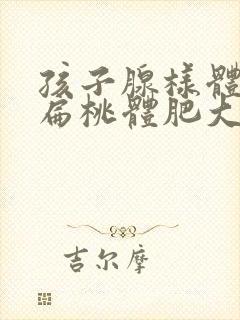 孩子腺樣體
扁桃體肥大
吉尔摩